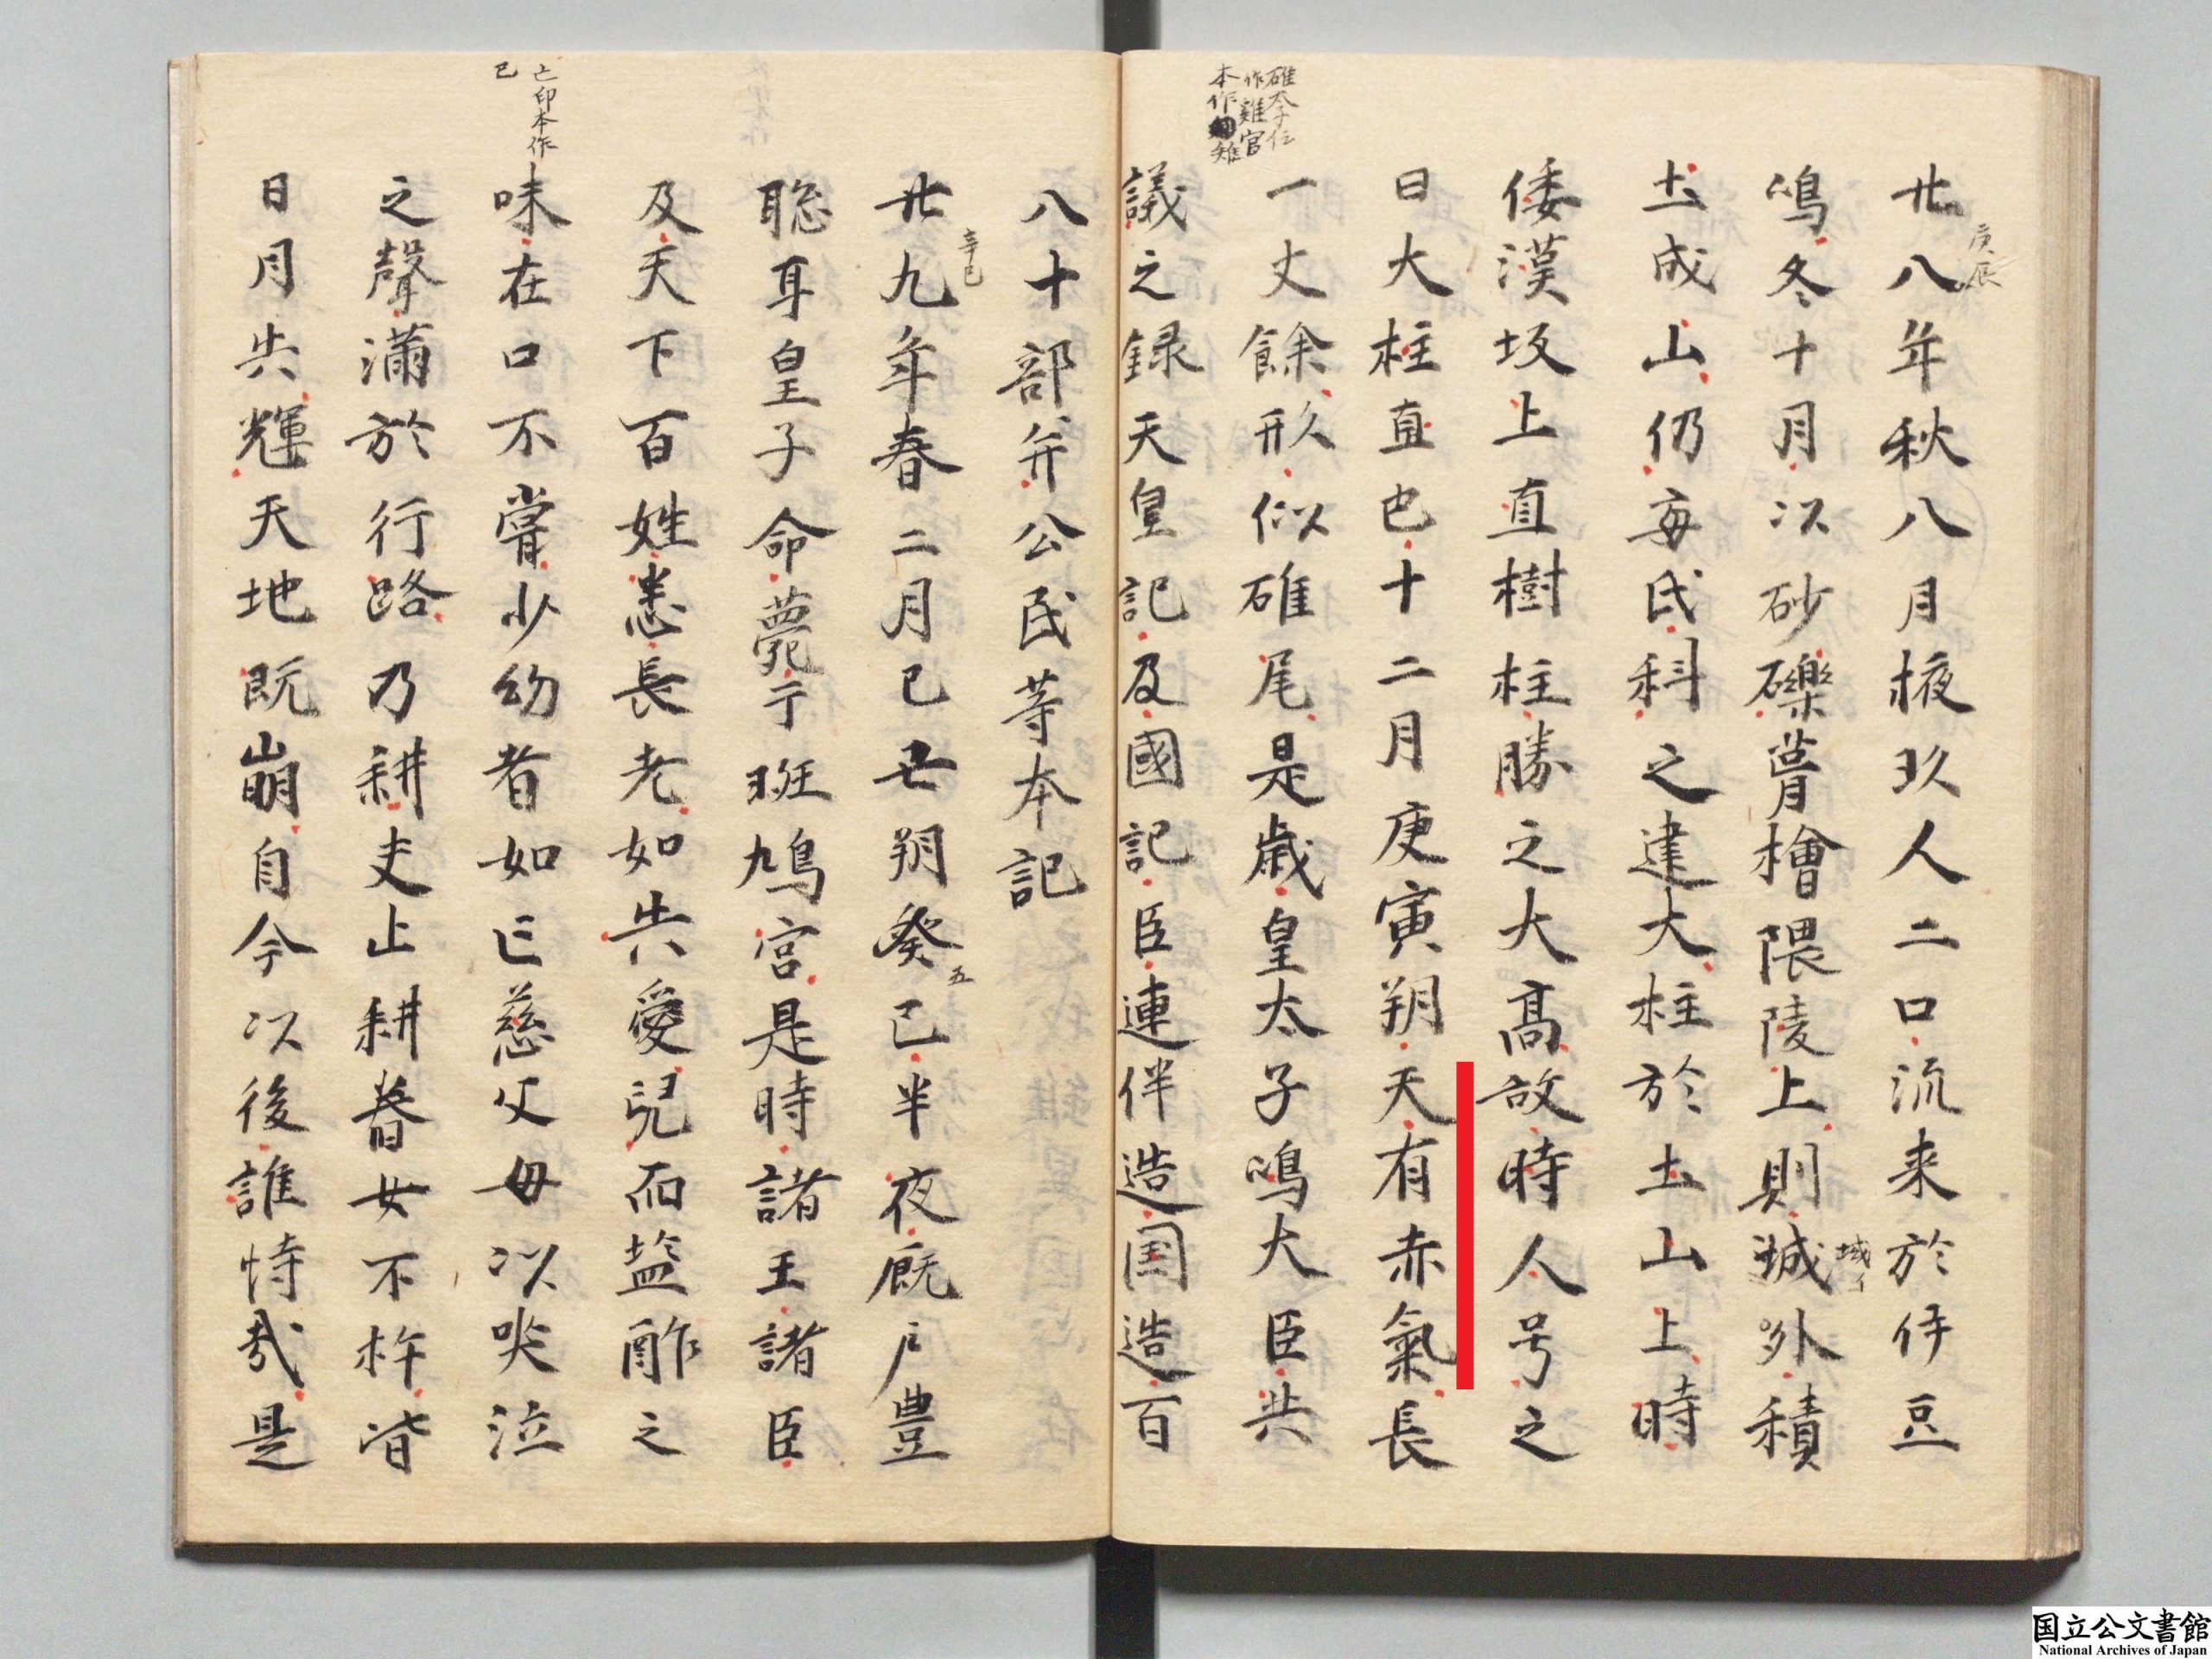 庚辰
廿八年秋八月掖玖人二口流来於伊豆
鳴冬十月以砂礫葺檜隈陵上則城外積
域イ
土成山仍毎氏科之建大柱於土山上時
倭漢坂上直樹柱勝之大髙故時人号之
曰大柱直也十二月庚寅朔天有赤氣長
碓太子伝
作雞官
本作雉
一丈餘形似碓尾是歳皇太子鳴大臣共
議之録天皇記及國記臣連伴造国造百
八十部并公民等本記
辛巳
廿九年春二月己丑朔癸巳半夜厩戸豊
五
聡耳皇子命薨于斑鳩宮是時諸王諸臣
及天下百姓悉長老如失愛兒而盐酢之
亡印本作
已
味在口不嘗少幼者如亡慈父母以哭泣
之聲満於行路乃耕夫止耕舂女不杵皆
日月失輝天地既崩自今以後誰恃哉是
国立公文書館
National Archives of Japan